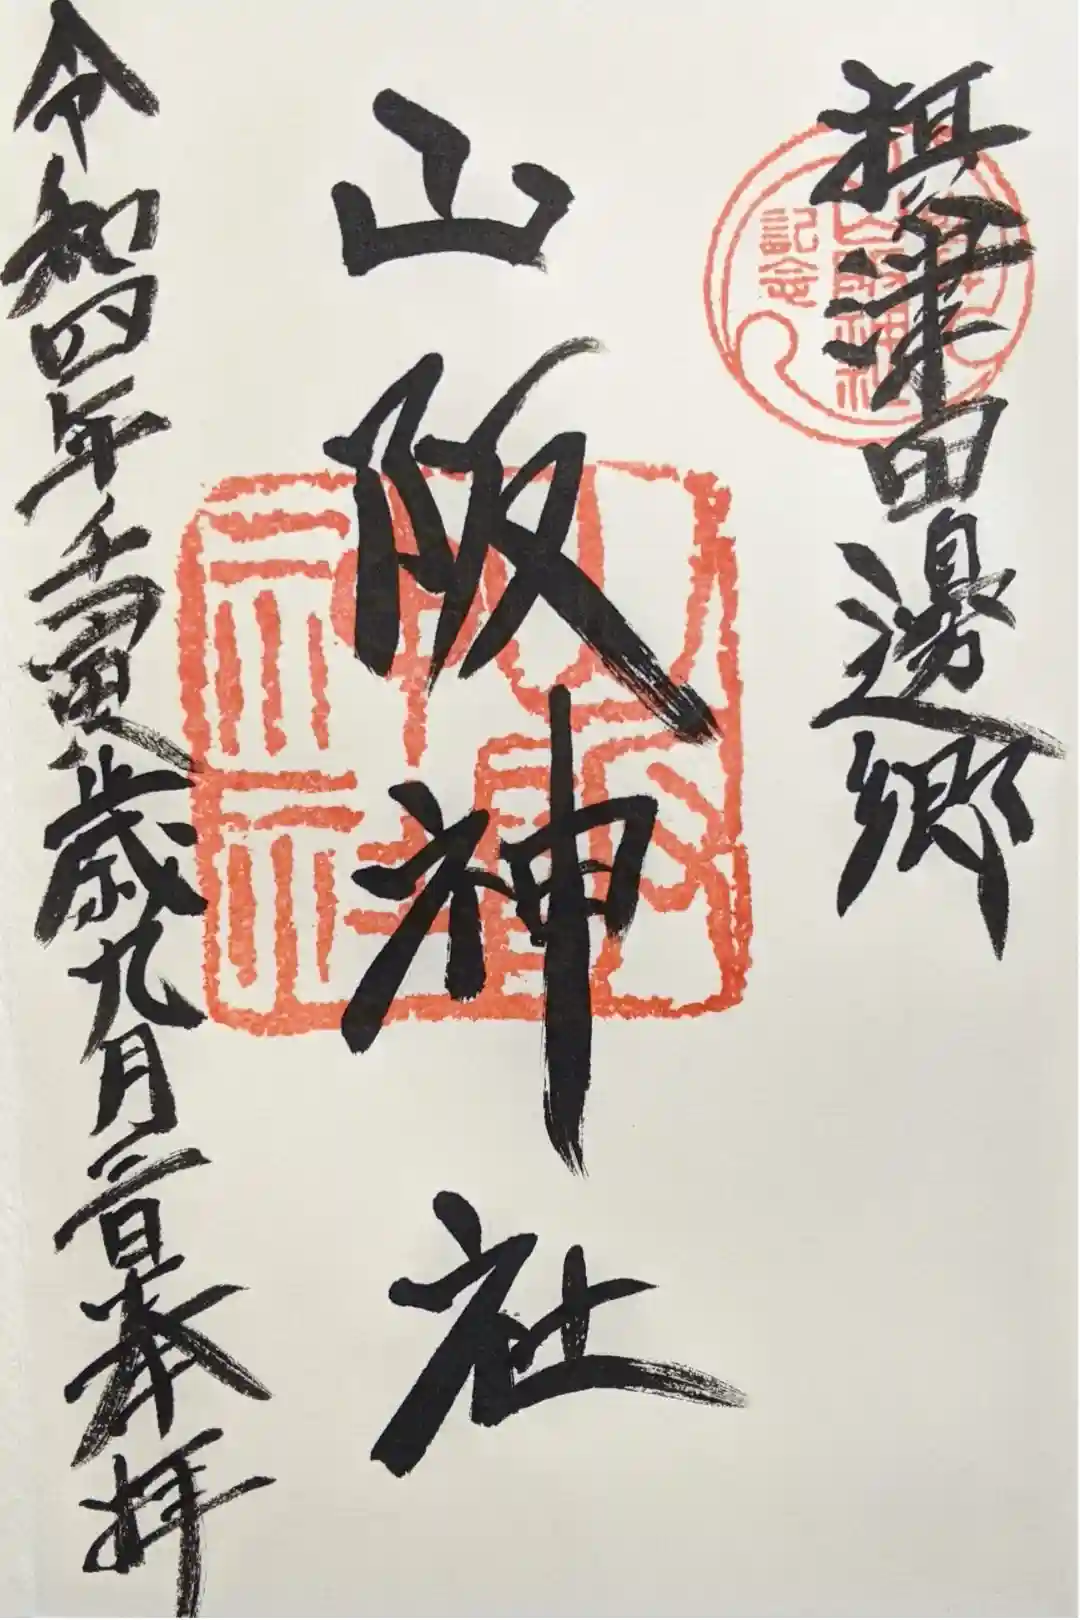 摂津田邊郷
山阪神社
令和四年壬寅歳九月三日奉拝
山阪神社
記念
山阪
神社